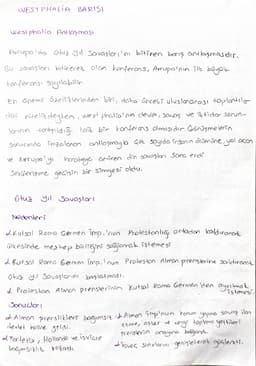 WESTPHALIA BARIŞI
Westphalia Antlaşması
Avrupa'da Otuz Yıl Savaşları'nı bitiren barış antlaşmasıdır.
Bu savaşları bitirecek olan konferans, Avrupa'nın ilk büyük
konferansı sayılabilir.
En önemli özelliklerinden biri, daha önceki uluslararası toplantılar
dini nitelikteyken, Westphalia'nın devlet, savaş ve iktidar sorun-
larının tartışıldığı laik bir konferans olmasıdır. Görüşmelerin
sonucunda imzalanan antlaşmayla çok sayıda insanın ölümüne yol açan
ve Avrupa'yı harabeye çeviren din savaşları sona erdi
Sekülerizme geçişin bir simgesi oldu.
Otuz Yıl Savaşları
Nedenleri
Kutsal Roma Germen İmp.'nun Protestanlığı ortadan kaldırarak
ülkesinde mezhep birliğini sağlamak istemesi
Kutsal Roma Germen İmp.'nun Protestan Alman prenslerine saldırarak
Otuz Yıl Savaşlarını başlatması.
Protestan Alman prenslerinin Kutsal Roma Germen'den ayrılmak
istemesi.
Sonuçları
Alman prenslikleri bağımsız
devlet haline geldi.
Portekiz, Hollanda ve İsviçre
bağımsızlık kazandı.
Alman İmp.'nun kanun yapma savaş ilan
etme, asker ve vergi toplama yetkileri
prenslerin onayına bağlandı.
İsveç sınırlarını genişleterek güçlendi.